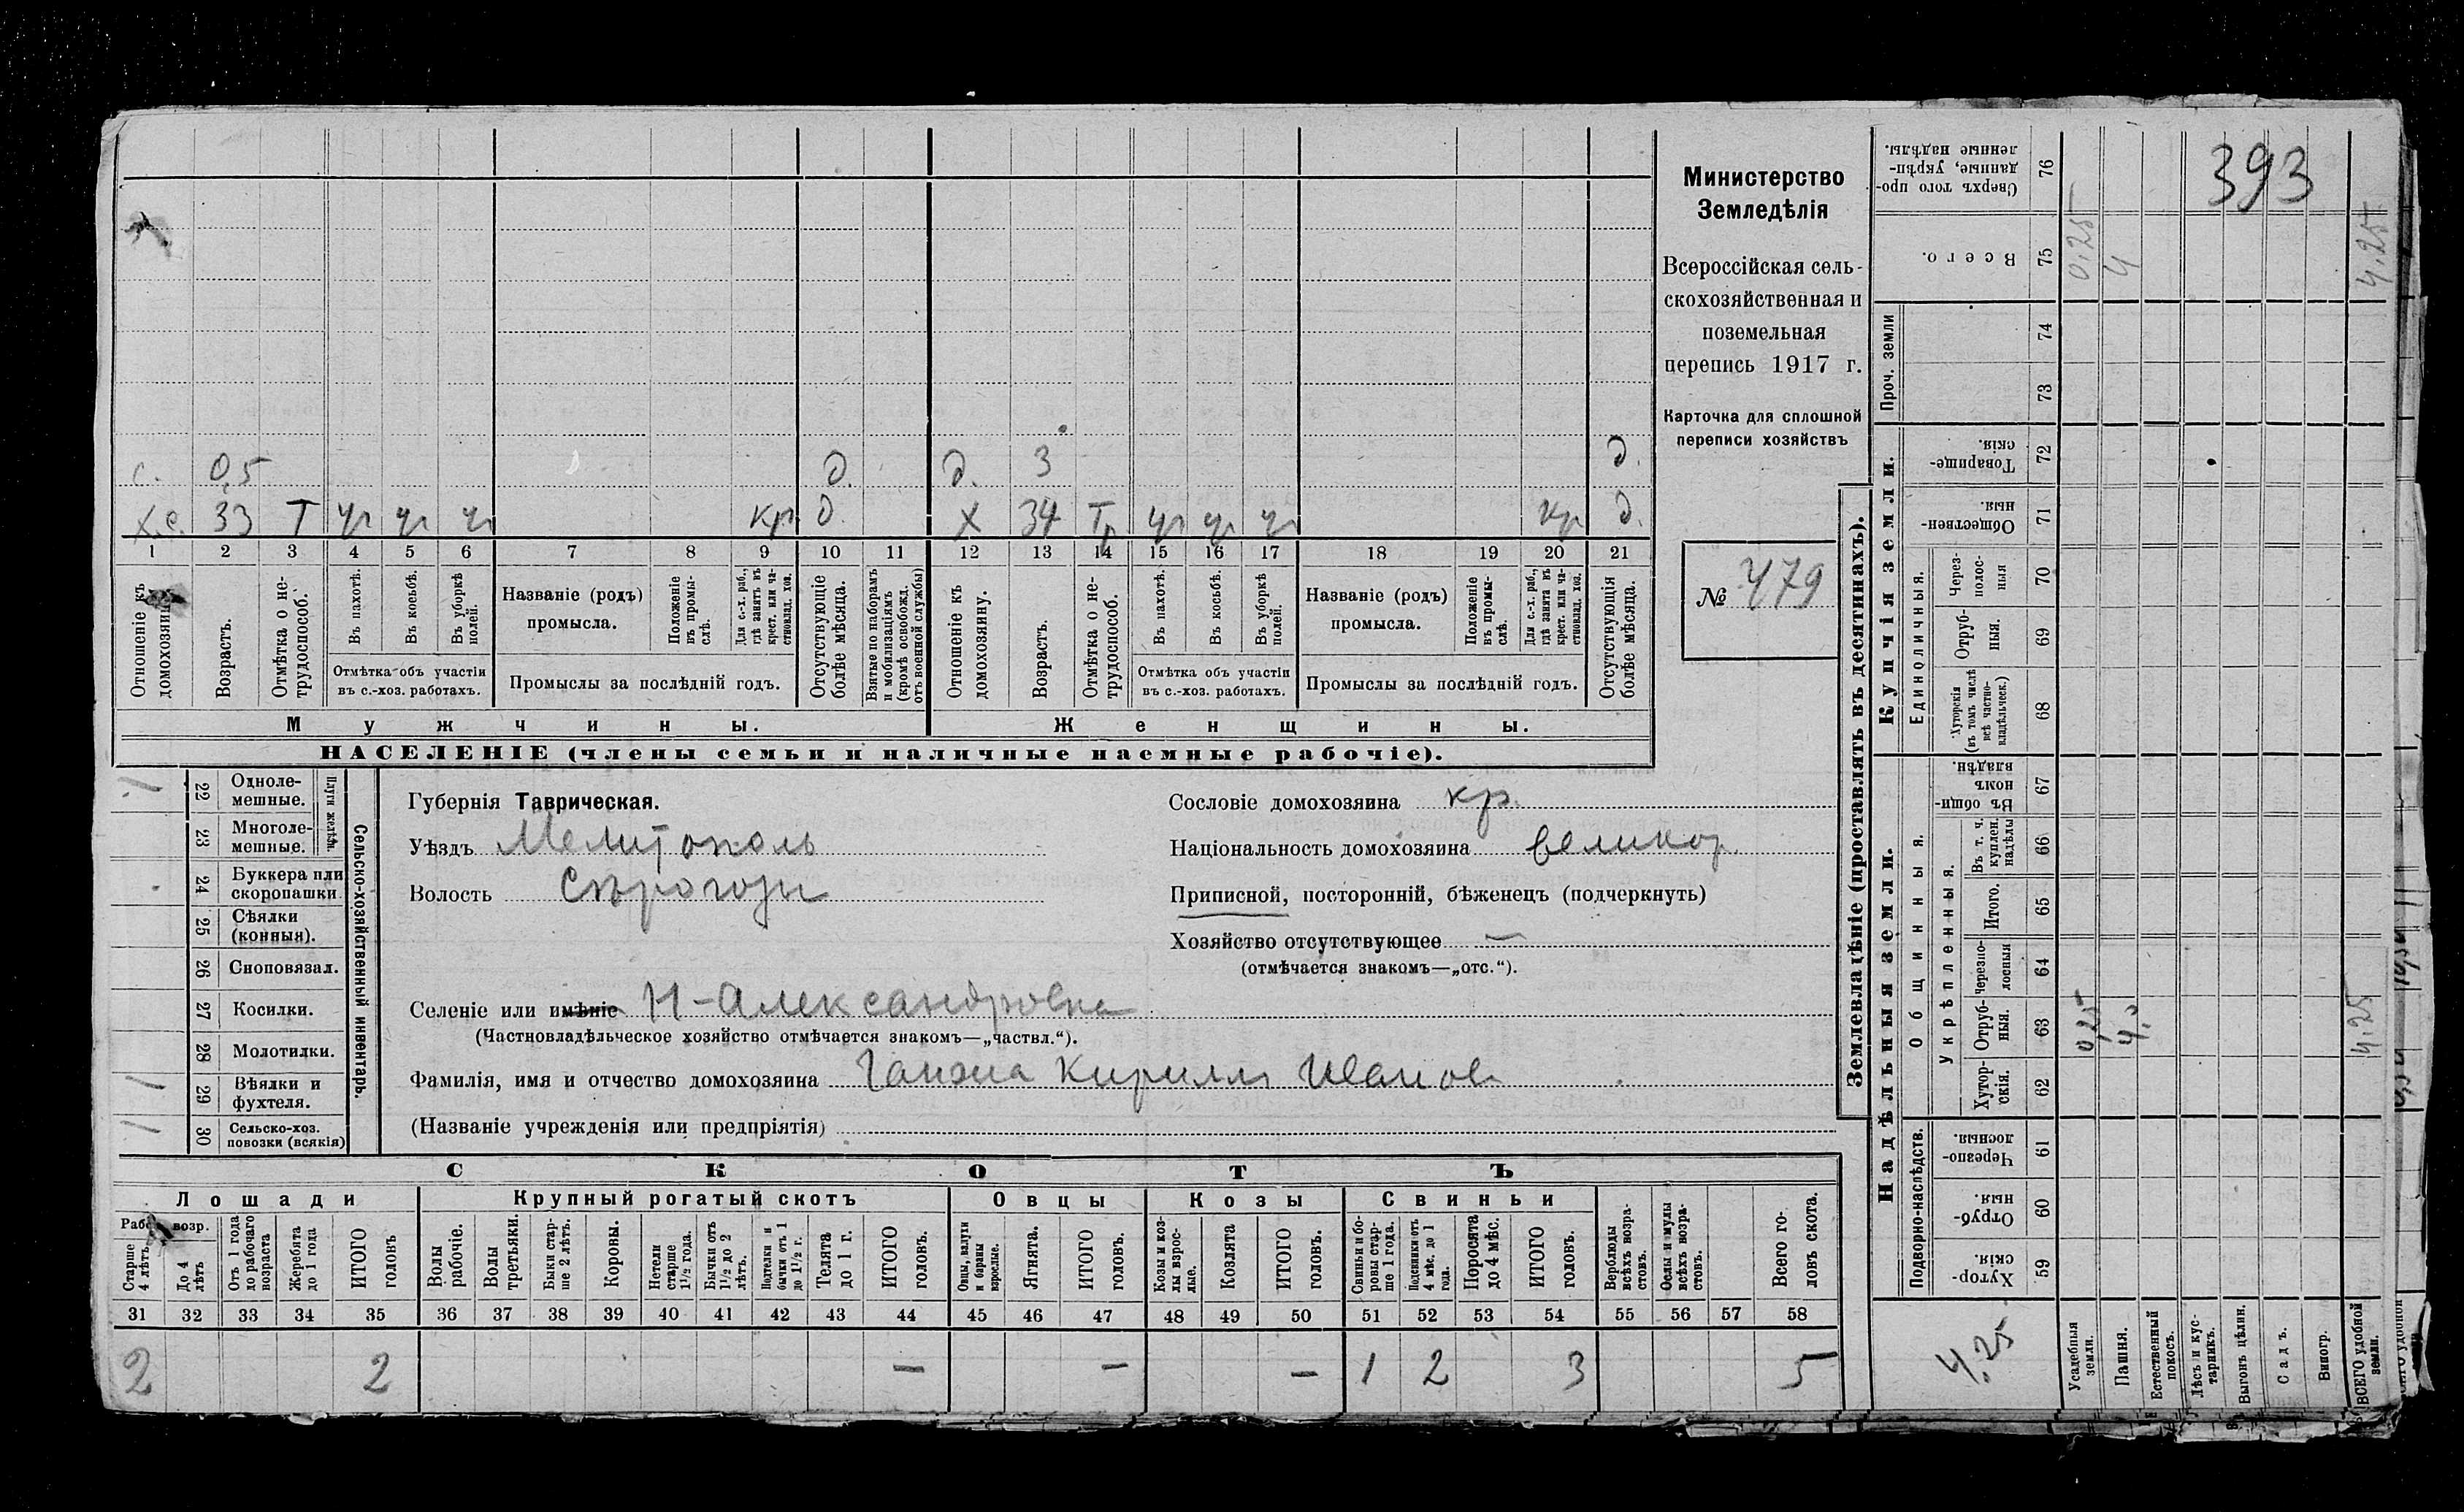 с. 0,5 д. д. 3 д.
Х.с. 33 Т ч ч ч кр д. Х 34 Тр ч ч ч кр д.
1 2 3 4 5 6 7 8 9 10 11 12 13 14 15 16 17 18 19 20 21
Отношеніе къ домохозяину.
Возрастъ.
Отмѣтка о не-трудоспособ.
Въ пахотѣ.
Въ косьбѣ.
Въ уборкѣ полей.
Отмѣтка объ участіи въ с.-хоз. работахъ.
Названіе (родъ) промысла.
Положеніе въ промы-слѣ.
Для с.-х. раб., гдѣ занятъ въ крест. или ча-стновлад. хоз.
Промыслы за послѣдній годъ.
Отсутствующіе болѣе мѣсяца.
Взятые по наборамъ и мобилизаціямъ (кромѣ освобожд. отъ военной службы)
Отношеніе къ домохозяину.
Возрастъ.
Отмѣтка о не-трудоспособ.
Въ пахотѣ.
Въ косьбѣ.
Въ уборкѣ полей.
Отмѣтка объ участіи въ с.-хоз. работахъ.
Названіе (родъ) промысла.
Положеніе въ промы-слѣ.
Для с.-х. раб., гдѣ занята въ крест. или ча-стновлад. хоз.
Промыслы за послѣдній годъ.
Отсутствующія болѣе мѣсяца.
Мужчины. Женщины.
НАСЕЛЕНІЕ (члены семьи и наличные наемные рабочіе).
Министерство
Земледѣлія
Всероссійская сель-
скохозяйственная и
поземельная
перепись 1917 г.
Карточка для сплошной
переписи хозяйствъ
№ 479
1 22 Одноле-мешные.
23 Многоле-мешные.
Плуги желѣзн.
24 Буккера или скоропашки
25 Сѣялки (конныя).
26 Сноповязал.
27 Косилки.
28 Молотилки.
1 29 Вѣялки и фухтеля.
1 30 Сельско-хоз. повозки (всякія)
Сельско-хозяйственный инвентарь.
Губернія Таврическая.
Уѣздъ Мелитополь
Волость Сѣрогозы
Селеніе или имѣніе Н-Александровка
(Частновладѣльческое хозяйство отмѣчается знакомъ—„частвл.“).
Фамилія, имя и отчество домохозяина Ганжа Кириллъ Иванов
(Названіе учрежденія или предпріятія)
Сословіе домохозяина кр.
Національность домохозяина великор.
Приписной, посторонній, бѣженецъ (подчеркнуть)
Хозяйство отсутствующее —
(отмѣчается знакомъ—„отс.“).
СКОТЪ
Лошади Крупный рогатый скотъ Овцы Козы Свиньи
Рабоч. возр.
Старше 4 лѣтъ.
До 4 лѣтъ
Отъ 1 года до рабочаго возраста
Жеребята до 1 года
ИТОГО головъ
Волы рабочіе.
Волы третьяки.
Быки стар-ше 2 лѣтъ.
Коровы.
Нетели старше 1½ года.
Бычки отъ 1½ до 2 лѣтъ.
Подтелки и бычки отъ 1 до 1½ г.
Телята до 1 г.
ИТОГО головъ.
Овцы, валухи и бараны взрослые.
Ягнята.
ИТОГО головъ.
Козы и коз-лы взрос-лые.
Козлята
ИТОГО головъ.
Свиньи и бо-ровы стар-ше 1 года.
Подсвинки отъ 4 мѣс. до 1 года.
Поросята до 4 мѣс.
ИТОГО головъ.
Верблюды всѣхъ возра-стовъ.
Ослы и мулы всѣхъ возра-стовъ.
Всего го-ловъ скота.
31 32 33 34 35 36 37 38 39 40 41 42 43 44 45 46 47 48 49 50 51 52 53 54 55 56 57 58
2 2 — — — 1 2 3 5
Землевладѣніе (проставлять въ десятинахъ).
393
Сверхъ того про-данные, укрѣп-ленные надѣлы. 76
Всего. 75 0,25 4 4,25
Проч. земли 74 73
Купчія земли.
Товарище-скія. 72
Обществен-ныя. 71
Единоличныя.
Через-полос-ныя 70
Отруб-ныя. 69
Хуторскія (въ томъ числѣ всѣ частно-владѣльческ.) 68
Надѣльныя земли.
Общинныя.
Въ общи-номъ владѣн. 67
Укрѣпленныя.
Въ т. ч. куплен. надѣлы 66
Итого. 65
Черезпо-лосныя 64
Отруб-ныя. 63 0,25 4,0 4,25
Хутор-скія. 62
Подворно-наслѣдств.
Черезпо-лосныя. 61
Отруб-ныя. 60
Хутор-скія. 59
4,25
Усадебныя земли.
Пашня.
Естественный покосъ.
Лѣсъ и кус-тарникъ.
Выгонъ цѣлин.
Садъ.
Виногр.
ВСЕГО удобной земли.